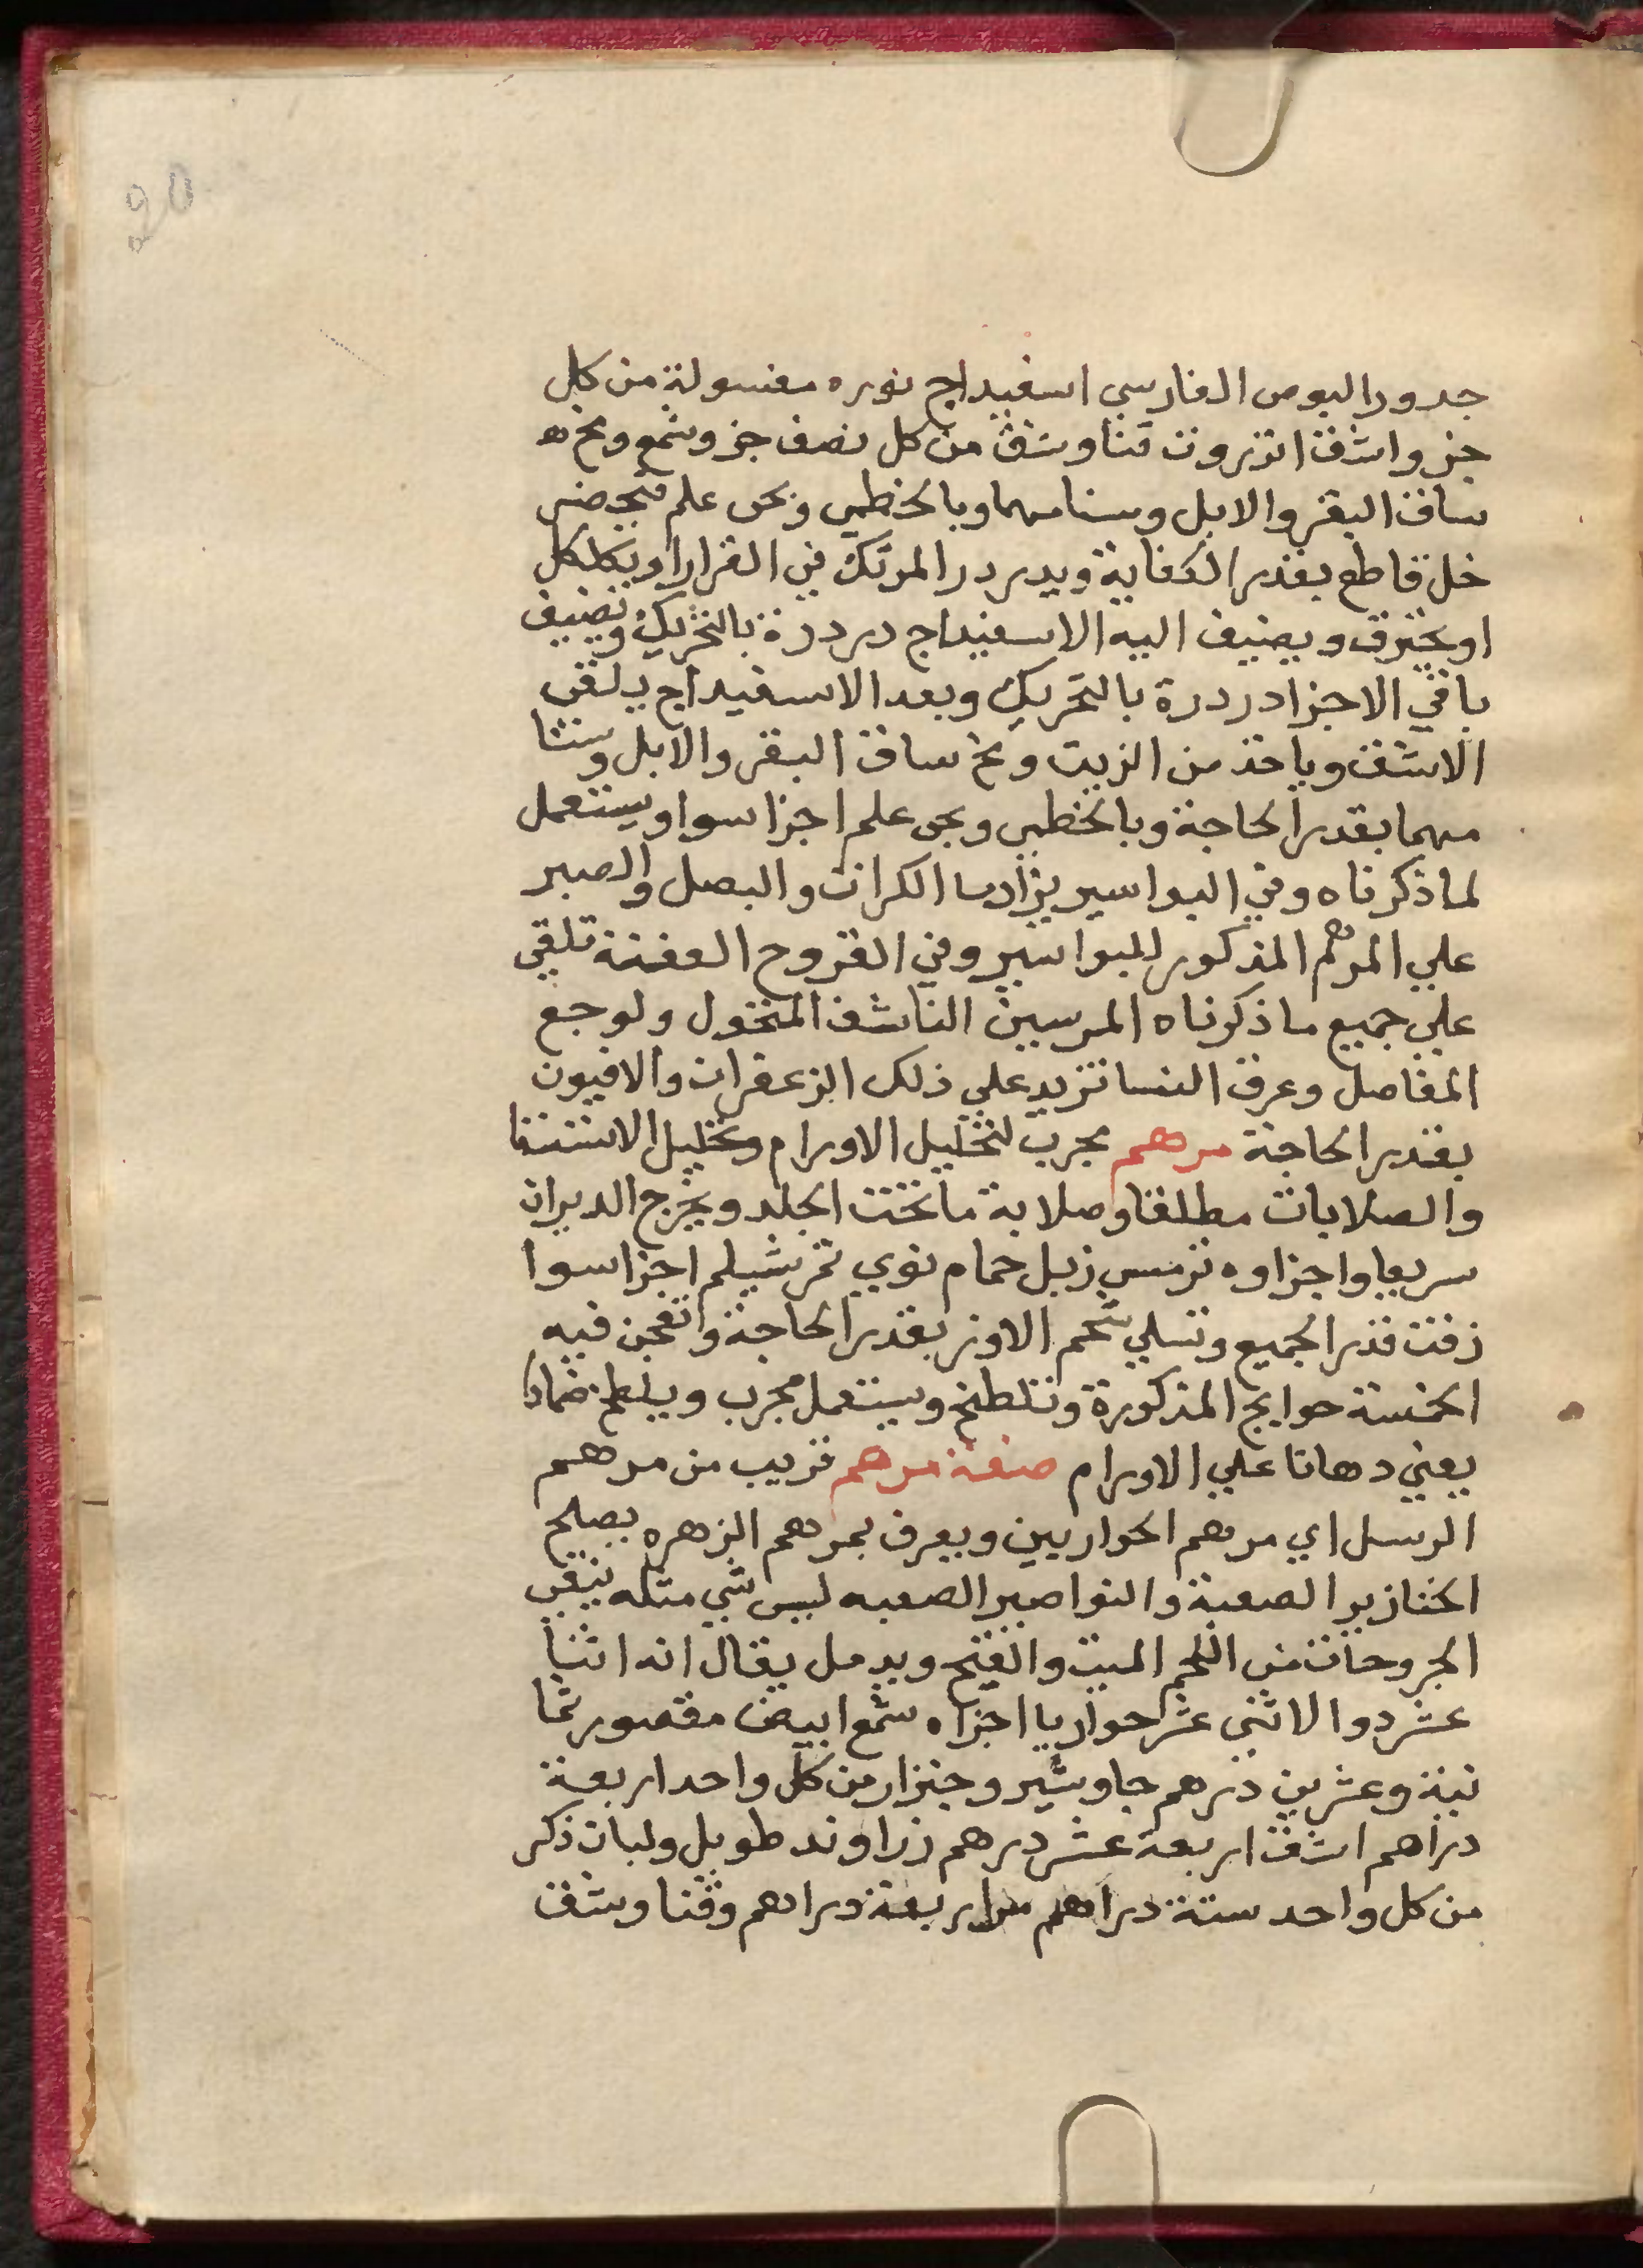 جدور البوص الفارسي اسفيداج نوره مغسولة من كل
جزو اشق انزروت قنا وشق من كل نصف جزو شمع ومخ
ساق البقر والابل وسنامهما وبالخطمي وبحر علم
خل قاطع بقدر الكفاية ويدردر المرتك في القرار
او يحترق ويضيف اليه الاسفيداج دردرة بالتحريك وتضيف
باقي الاجزا دردرة بالتحريك وبعد الاسفيداج يلقى
الاشق وياخذ من الزيت ومخ ساق البقر والابل وسنا
مهما بقدر الحاجة وبالخطمي وبحر علم اجزا سوا ويستعمل
لما ذكرناه وفي البواسير يزاد ما الكراث والبصل والصبر
علي المرهم المذكور للبواسير وفي القروح العفنة تلقي
علي جميع ما ذكرناه المرسين الناشف المنخول ولوجع
المفاصل وعرق النسا تزيد علي ذلك الزعفران والافيون
بقدر الحاجة مرهم مجرب لتحليل الاورام وتحليل الاستسقا
والصلابات مطلقا وصلابة ما تحت الجلد ويخرج الديران
سريعا واجزاوه ترمس زبل حمام نوي تمر شيلم اجزا سوا
زفت قدر الجميع وتسلي شحم الاوز بقدر الحاجة واتعجن فيه
الخمسة حوايج المذكورة وتتطبخ ويستعمل مجرب ويلطخ ضمادا
يعني دهانا علي الاورام صفة مرهم قريب من مرهم
الرسل اي مرهم الحواريين ويعرف بمرهم الزهره يصلح
الخنازير الصعبة والنواصير الصعبه ليس شي مثله ينقي
الجروحات من اللحم الميت والقيح ويدمل يقال انه اثنا
عشر دوا لاثني عشر حواريا اجزاه شمع ابيض مقصور ثما
نية وعشرين درهم جاوشير وجنزار من كل واحد اربعة
دراهم اشق اربعة عشر درهم زراوند طويل ولبان ذكر
من كل واحد ستة دراهم مر اربعة دراهم وقنا وشق